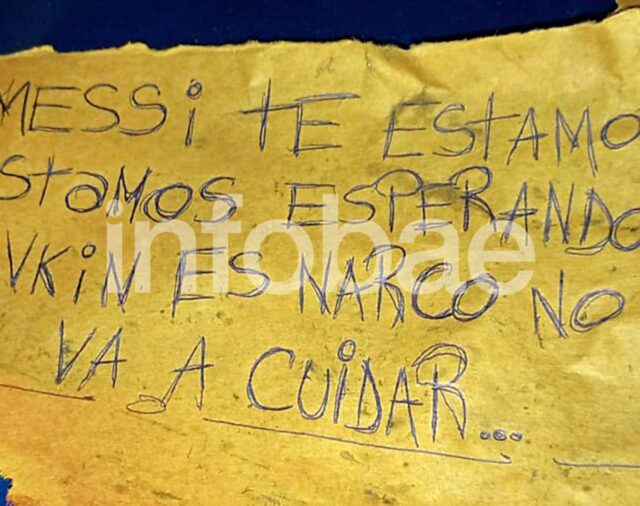 MESSi tE EStAMO
StaMOS ESPERANDO
VKiN ES NARCO NO
VA A CUiDAR...
infobae